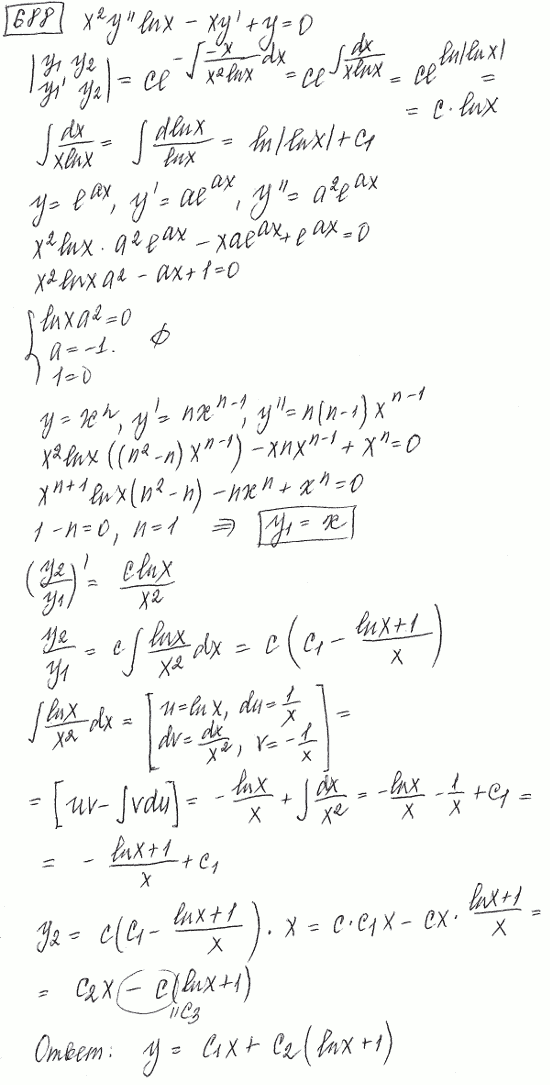 688 x²y'' lnx - xy' + y = 0
|y₁ y₂ / y₁' y₂'| = ce^(-∫(-x)/(x² lnx) dx) = ce^(∫dx/(x lnx)) = ce^(ln|lnx|) =
= c · lnx
∫ dx/(x lnx) = ∫ dlnx/lnx = ln|lnx| + c₁
y = e^(ax), y' = ae^(ax), y'' = a²e^(ax)
x² lnx · a²e^(ax) - xae^(ax) + e^(ax) = 0
x² lnx a² - ax + 1 = 0
{ lnx a² = 0
a = -1. ∅
1 = 0
y = xⁿ, y' = nx^(n-1), y'' = n(n-1)x^(n-1)
x² lnx ((n²-n)x^(n-1)) - xnx^(n-1) + xⁿ = 0
x^(n+1) lnx (n²-n) - nxⁿ + xⁿ = 0
1 - n = 0, n = 1 ⇒ y₁ = x
(y₂/y₁)' = c lnx / x²
y₂/y₁ = c ∫ lnx/x² dx = c (c₁ - (lnx+1)/x)
∫ lnx/x² dx = [u = lnx, du = 1/x / dv = dx/x², v = -1/x] =
= [uv - ∫vdu] = - lnx/x + ∫ dx/x² = - lnx/x - 1/x + c₁ =
= - (lnx+1)/x + c₁
y₂ = c(c₁ - (lnx+1)/x) · x = c·c₁x - cx · (lnx+1)/x =
= c₂x - c(lnx+1)
"c₃
Ответ: y = c₁x + c₂(lnx+1)